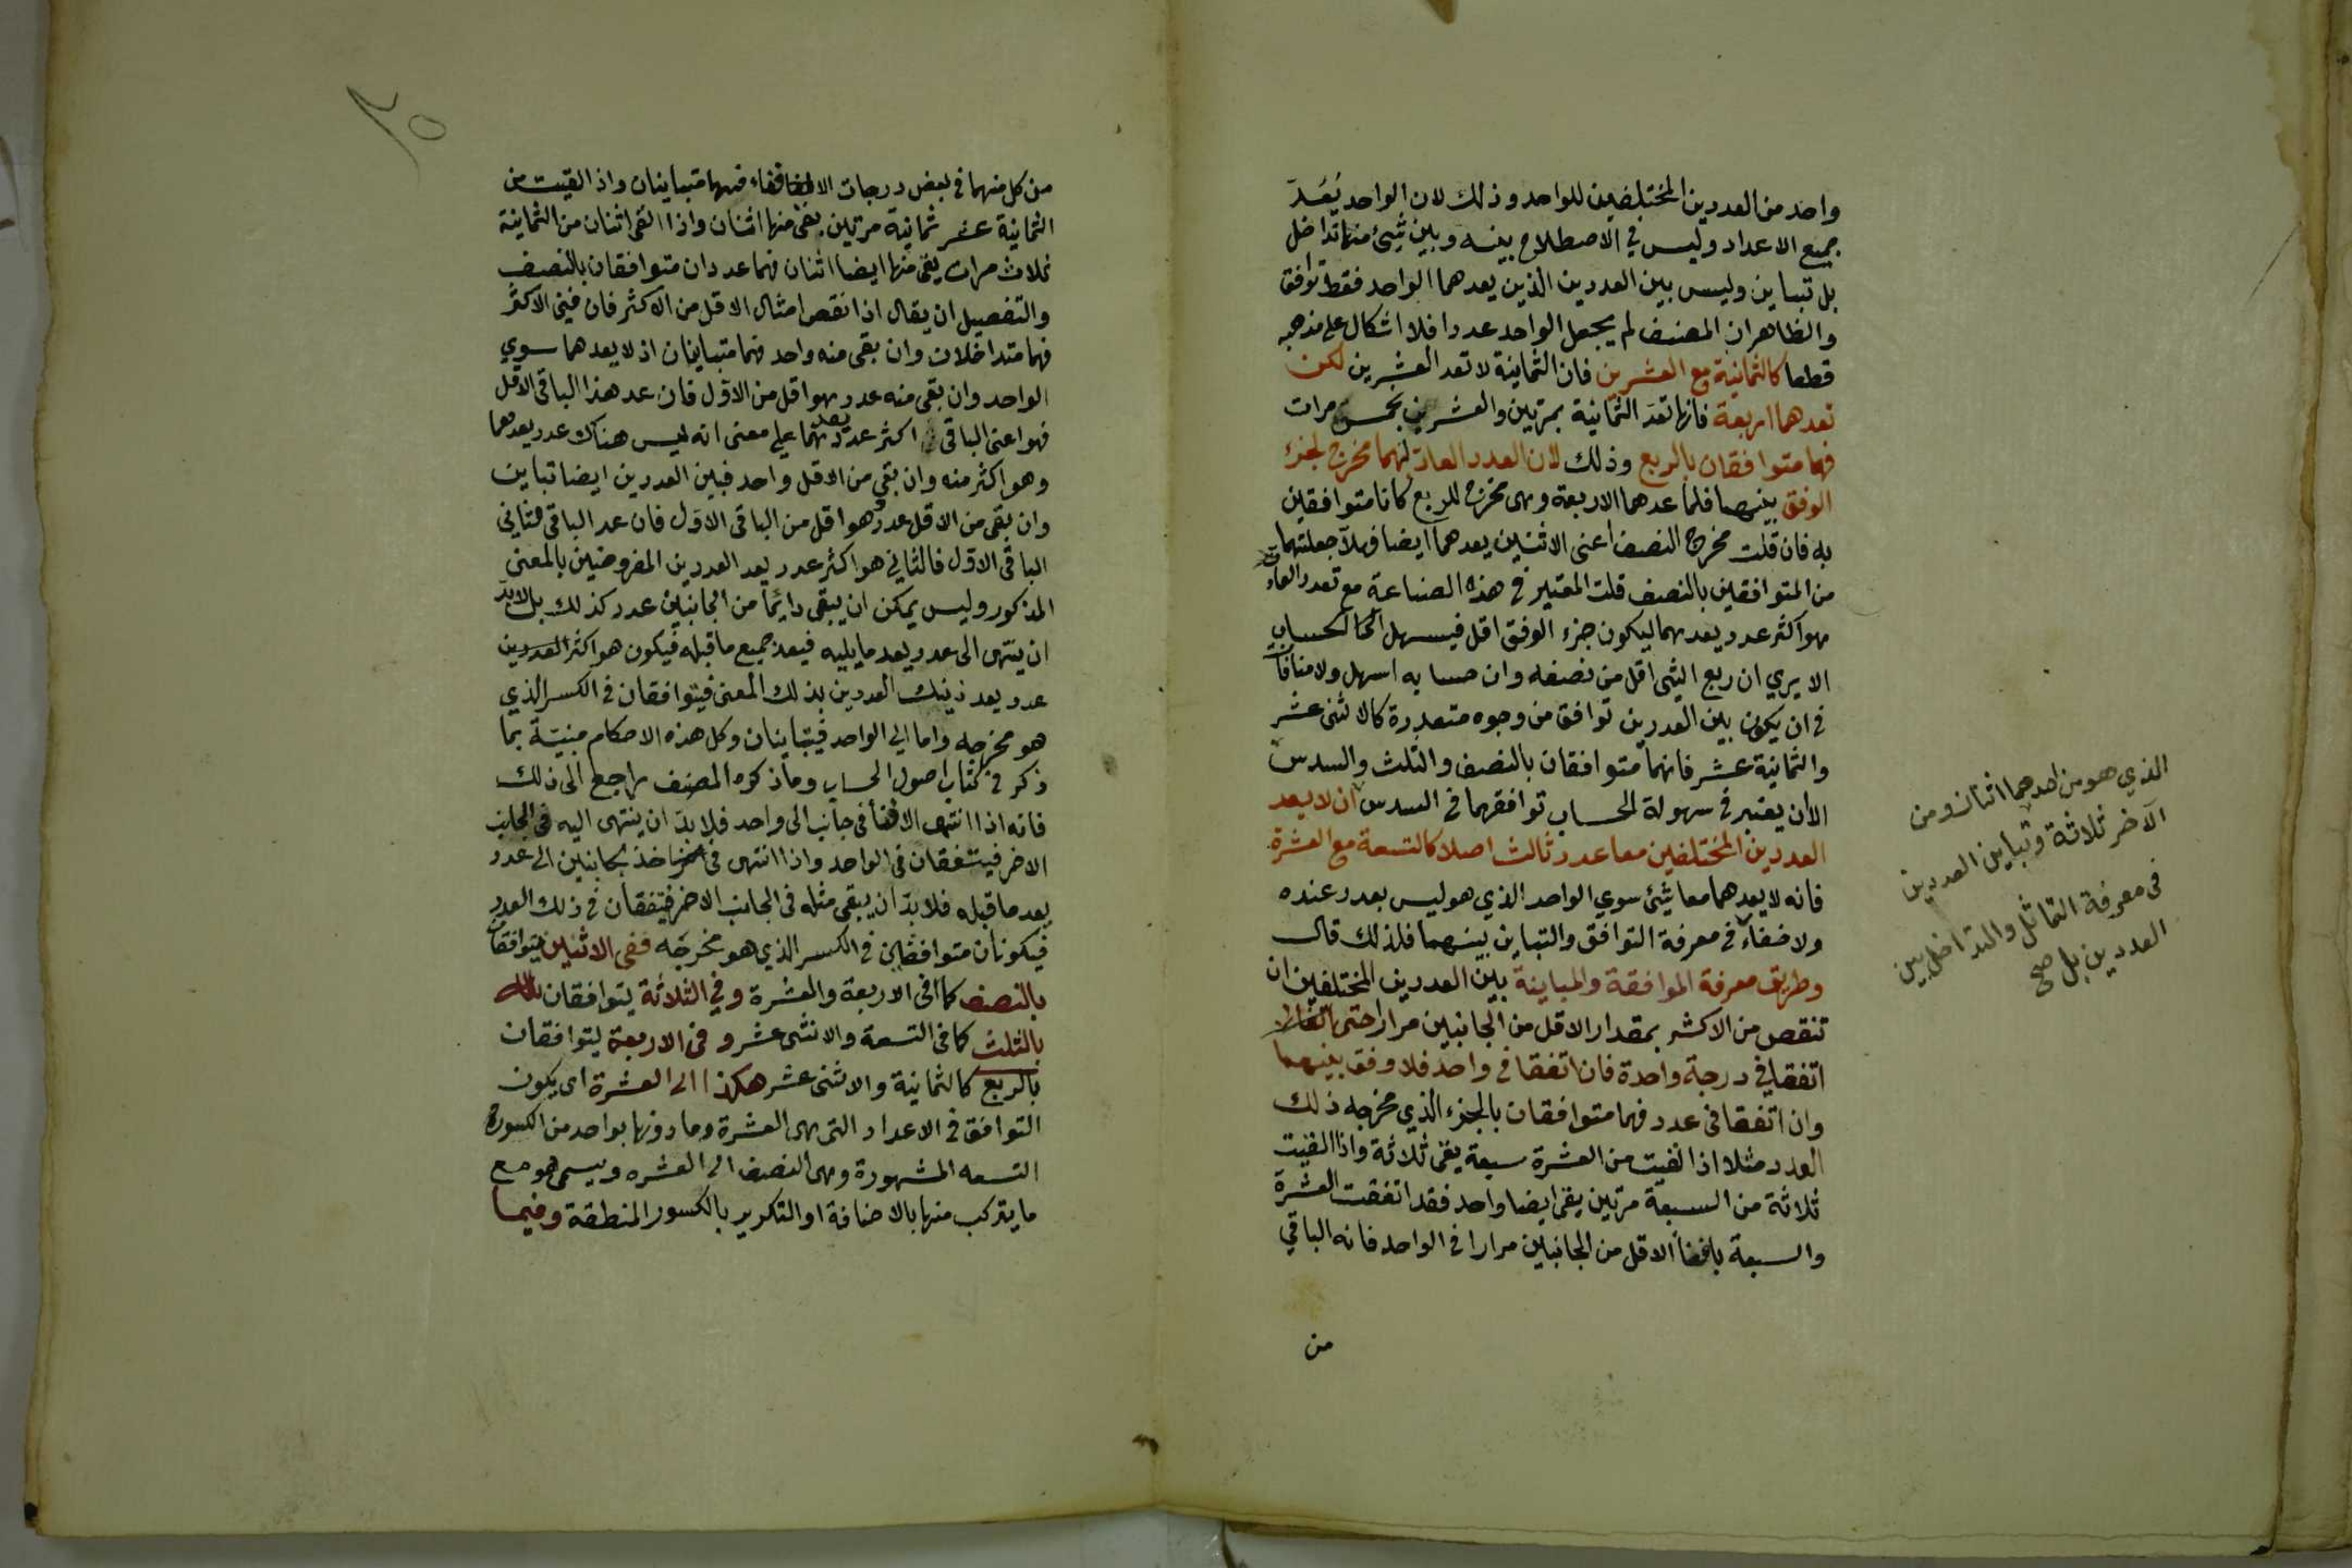 واحد من العددين المختلفين للواحد وذلك لان الواحد يَعُدّ
جميع الاعداد وليس في الاصطلاح بينه وبين شيئ منها تداخل
بل تباين وليس بين العددين الذين يعدهما الواحد فقط توافق
والظاهر ان المصنف لم يجعل الواحد عددا فلا اشكال على مذهبه
قطعا كالثمانية مع العشرين فان الثمانية لا تعد العشرين لكن
تعدهما اربعة فانها تعدّ الثمانية بمرتين والعشرين بخمس مرات
فهما متوافقان بالربع وذلك لان العدد العادّ لهما مخرج لجزء
الوفق بينهما فلما عدهما الاربعة وهى مخرج للربع كانا متوافقين
به فان قلت مخرج النصف اعنى الاثنين يعدهما ايضا فهلا جعلتهما
من المتوافقين بالنصف قلت المعتبر في هذه الصناعة مع تعدد العاد
هو اكثر عدد يعدهما ليكون جزء الوفق اقل فيسهل الحساب
الا يري ان ربع الشئ اقل من نصفه وان حسابه اسهل ولا منافاة
في ان يكون بين العددين توافق من وجوه متعددة كالاثنى عشر
والثمانية عشر فانهما متوافقان بالنصف والثلث والسدس
الا ان يعتبر في سهولة الحساب توافقهما في السدس ان لا يعد
العددين المختلفين معا عدد ثالث اصلا كالتسعة مع العشرة
فانه لا يعدهما معا شيئ سوي الواحد الذي هو ليس بعدد عنده
ولا خفاء في معرفة التوافق والتباين بينهما فلذلك قال
وطريق معرفة الموافقة والمباينة بين العددين المختلفين ان
تنقص من الاكثر بمقدار الاقل من الجانبين مرارا حتى
اتفقا في درجة واحدة فان اتفقا في واحد فلا وفق بينهما
وان اتفقا فى عدد فهما متوافقان بالجزء الذي مخرجه ذلك
العدد مثلا اذا لقيت من العشرة سبعة يبقى ثلاثة واذا القيت
ثلاثة من السبعة مرتين يبقى ايضا واحد فقد اتفقت العشرة
والسبعة بافناء الاقل من الجانبين مرارا في الواحد فانه الباقي
من
الذي هو من احدهما اثنان ومن
الآخر ثلاثة وتباين العددين
فى معرفة التماثل والتداخل بين
العددين بل صح
٢٥
من كل منهما في بعض درجات الافناء فهما متباينان واذا لقيت من
الثمانية عشر ثمانية مرتين بقى منها اثنان واذا القى اثنان من الثمانية
ثلاث مرات يبقى منها ايضا اثنان فهما عددان متوافقان بالنصف
والتفصيل ان يقال اذا نقص امثال الاقل من الاكثر فان فنى الاكثر
فهما متداخلان وان بقى منه واحد فهما متباينان اذ لا يعدهما سوي
الواحد وان بقى منه عدد هو اقل من الاوّل فان عد هذا الباقى الاقل
فهو اعنى الباقى اكثر عدد يعدهما على معنى انه ليس هناك عدد يعدهما
وهو اكثر منه وان بقي من الاقل واحد فبين العددين ايضا تباين
وان بقى من الاقل عدد وهو اقل من الباقى الاوّل فان عد الباقى الثاني
الباقى الاوّل فالثاني هو اكثر عدد يعد العددين المفروضين بالمعنى
المذكور وليس يمكن ان يبقى دائما من الجانبين عدد كذلك بل لا بدّ
ان ينتهى الى عدد يعد ما يليه فيعد جميع ما قبله فيكون هو اكثر العددين
عدد يعد ذينك العددين بذلك المعنى فيتوافقان في الكسر الذي
هو مخرجه واما الي الواحد فيتباينان وكل هذه الاحكام مبنيّة بما
ذكر في كتاب اصول الحساب وما ذكره المصنف راجع الى ذلك
فانه اذا انتهى الافناء فى جانب الى واحد فلا بدّ ان ينتهى اليه فى الجانب
الاخر فيتفقان فى الواحد واذا انتهى فى احد بجانبين الى عدد
يعد ما قبله فلا بدّ ان يبقى مثله فى الجانب الاخر فيتفقان في ذلك العدد
فيكونان متوافقين في الكسر الذي هو مخرجه ففى الاثنين يتوافقان
بالنصف كما فى الاربعة والعشرة وفي الثلاثة يتوافقان
بالثلث كما فى التسعة والاثنى عشر وفى الاربعة يتوافقان
بالربع كالثمانية والاثنى عشر هكذا الى العشرة اى يكون
التوافق في الاعداد التى هى العشرة وما دونها بواحد من الكسور
التسعه المشهورة وهى النصف الى العشره ويسمى هو مع
ما يتركب منها بالاضافة او التكرير بالكسور المنطقة وفيما